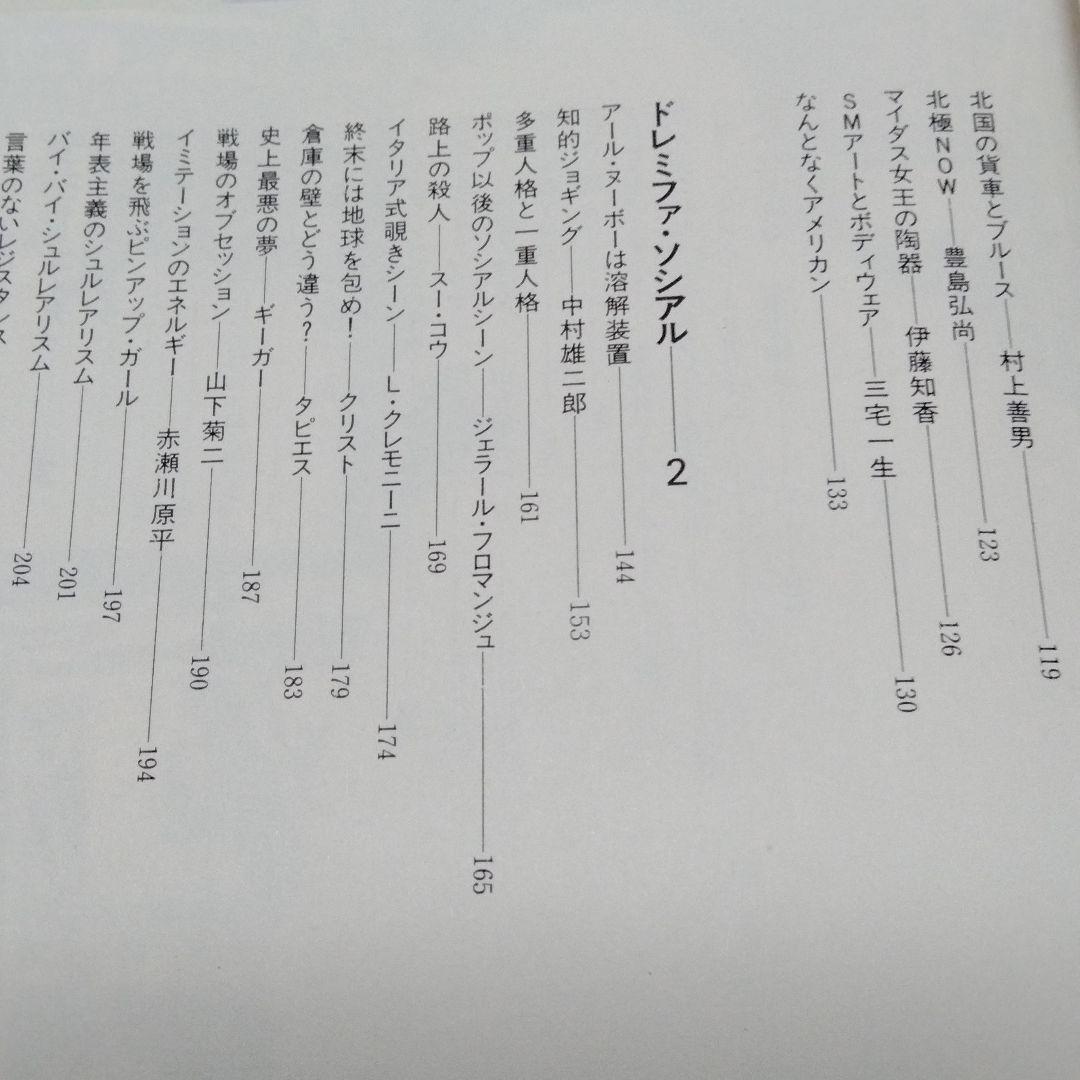 北国の貨車とブルース――村上善男――119
北極NOW――豊島弘尚――123
マイダス女王の陶器――伊藤知香――126
SMアートとボディウェア――三宅一生――130
なんとなくアメリカン――133
ドレミファ・ソシアル――2
アール・ヌーボーは溶解装置――144
知的ジョギング――中村雄二郎――153
多重人格と一重人格――161
ポップ以後のソシアルシーン――ジェラール・フロマンジュ――165
路上の殺人――スー・コウ――169
イタリア式覗きシーン――L・クレモニーニ――174
終末には地球を包め！――クリスト――179
倉庫の壁とどう違う？――タピエス――183
史上最悪の夢――ギーガー――187
戦場のオブセッション――山下菊二――190
イミテーションのエネルギー――赤瀬川原平――194
戦場を飛ぶピンアップ・ガール――197
年表主義のシュルレアリスム――201
バイ・バイ・シュルレアリスム――204
言葉のないレジスタンス